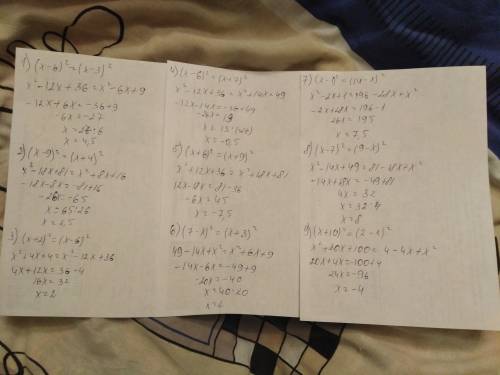 1) (x-6)² = (x-3)²
x² - 12x + 36 = x² - 6x + 9
-12x + 6x = -36 + 9
-6x = -27
x = 27 : 6
x = 4,5
2) (x-9)² = (x+4)²
x² - 18x + 81 = x² + 8x + 16
-18x - 8x = -81 + 16
-26x = -65
x = 65 : 26
x = 2,5
3) (x+2)² = (x-6)²
x² + 4x + 4 = x² - 12x + 36
4x + 12x = 36 - 4
16x = 32
x = 2
4) (x-6)² = (x+7)²
x² - 12x + 36 = x² + 14x + 49
-12x - 14x = -36 + 49
-26x = 13
x = -0,5
5) (x+6)² = (x+9)²
x² + 12x + 36 = x² + 18x + 81
12x - 18x = 81 - 36
-6x = 45
x = -7,5
6) (7-x)² = (x+3)²
49 - 14x + x² = x² + 6x + 9
-14x - 6x = -49 + 9
-20x = -40
x = 40 : 20
x = 2
7) (x-1)² = (14-x)²
x² - 2x + 1 = 196 - 28x + x²
-2x + 28x = 196 - 1
26x = 195
x = 7,5
8) (x-7)² = (9-x)²
x² - 14x + 49 = 81 - 18x + x²
-14x + 18x = -49 + 81
4x = 32
x = 32 : 4
x = 8
9) (x+10)² = (2-x)²
x² + 20x + 100 = 4 - 4x + x²
20x + 4x = -100 + 4
24x = -96
x = -4